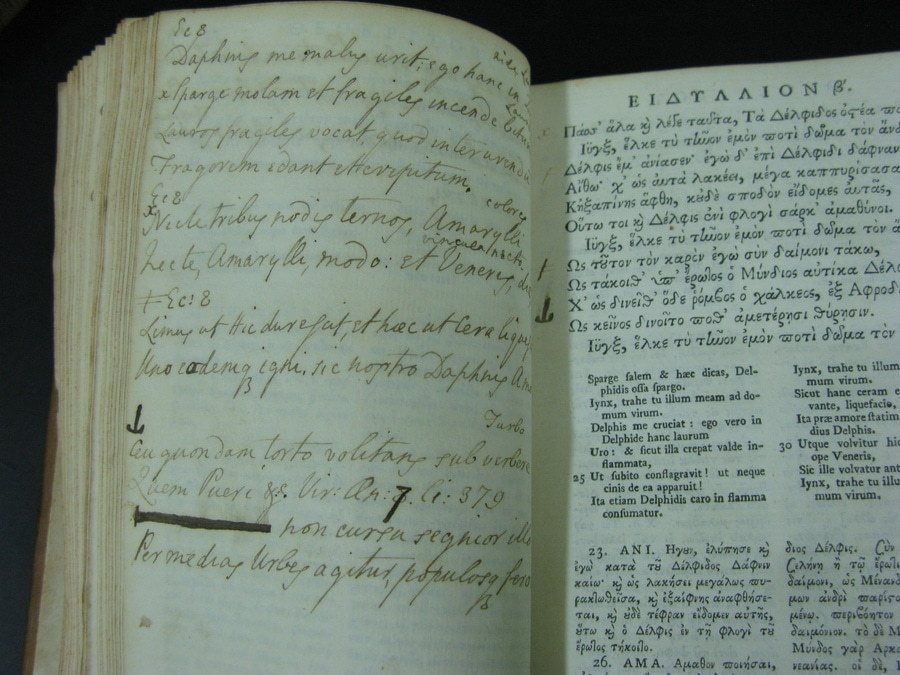 Ec 8
Daphnis me malus urit; ego hanc in
x Sparge molam et fragiles incende bitu
Lauros fragiles vocat, quod inter urendu
Fragorem edant et crepitum.
Ec 8
colores
x Necte tribus nodis ternos, Amarylli
vincula necte.
Necte, Amarylli, modo: et Veneris, di
‡ Ec: 8
Limus ut hic durescit, et hæc ut Cera lique
Uno eodemq igni, sic nostro Daphnis Am
Turbo
Ceu quondam torto volitans sub verbere
Quem Pueri &c. Vir: Æn: 7. li: 379
non cursu segnior illo
Per medias Urbes agitur, populosq fero
ΕΙΔΥΛΛΙΟΝ β΄.
Πάσσ' ἅλα κỳ λέγε ταῦτα, Τὰ Δέλφιδος ὀστέα πά
Ἶϋγξ, ἕλκε τὺ τῆνον ἐμὸν ποτὶ δῶμα τὸν ἄνδ
Δέλφις ἔμ' ἀνίασεν· ἐγὼ δ' ἐπὶ Δέλφιδι δάφναν
Αἴθω· χ' ὡς αὐτὰ λακέει, μέγα καππυρίσασα
Κἠξαπίνης ἄφθη, κοὐδὲ σποδὸν εἴδομες αὐτᾶς,
Οὕτω τοι κỳ Δέλφις ἐνὶ φλογὶ σάρκ' ἀμαθύνοι.
Ἶϋγξ, ἕλκε τὺ τῆνον ἐμὸν ποτὶ δῶμα τὸν ἄ
Ὡς τοῦτον τὸν καρὸν ἐγὼ σὺν δαίμονι τάκω,
Ὣς τάκοιθ' ὑπ' ἔρωτος ὁ Μύνδιος αὐτίκα Δέλ
Χ' ὡς δινεῖθ' ὅδε ῥόμβος ὁ χάλκεος, ἐξ Ἀφροδ
Ὣς κεῖνος δινοῖτο ποθ' ἁμετέρῃσι θύρῃσιν.
Ἶϋγξ, ἕλκε τὺ τῆνον ἐμὸν ποτὶ δῶμα τὸν
Sparge salem & hæc dicas, Del-
phidis ossa spargo.
Iynx, trahe tu illum meam ad do-
mum virum.
Delphis me cruciat: ego vero in
Delphide hanc laurum
Uro: & sicut illa crepat valde in-
flammata,
25 Ut subito conflagravit! ut neque
cinis de ea apparuit!
Ita etiam Delphidis caro in flamma
consumatur.
Iynx, trahe tu illum
mum virum.
Sicut hanc ceram e
vante, liquefacio,
Ita præ amore statim
dius Delphis.
30 Utque volvitur hic
ope Veneris,
Sic ille volvatur ant
Iynx, trahe tu illu
mum virum.
23. ΑΝΙ. Ηγουν, ἐλύπησε κỳ
ἐγὼ κατὰ τοῦ Δέλφιδος Δάφνιν
καίω· κỳ ὡς λακήσει μεγάλως πυ-
ρακτωθεῖσα, κỳ ἐξαίφνης ἀναφθήσε-
ται, κỳ οὐδὲ τέφραν εἴδομεν αὐτῆς,
οὕτω κỳ ὁ Δέλφις ἐν τῇ φλογὶ τοῦ
ἔρωτος τήκοιτο.
26. ΑΜΑ. Αμαθον ποιήσαι,
διος Δέλφις. Σὺν
Σελήνη ἢ τῷ ἔρωτι
δαίμονι, ὡς Μένανδ
μων ἀνδρὶ παρίστα
μένῳ. περιβόητον
δαιμόνιον. τὸ δὲ Μ
Μύνδος γὰρ Αρκα
νεανίας. οἱ δὲ,